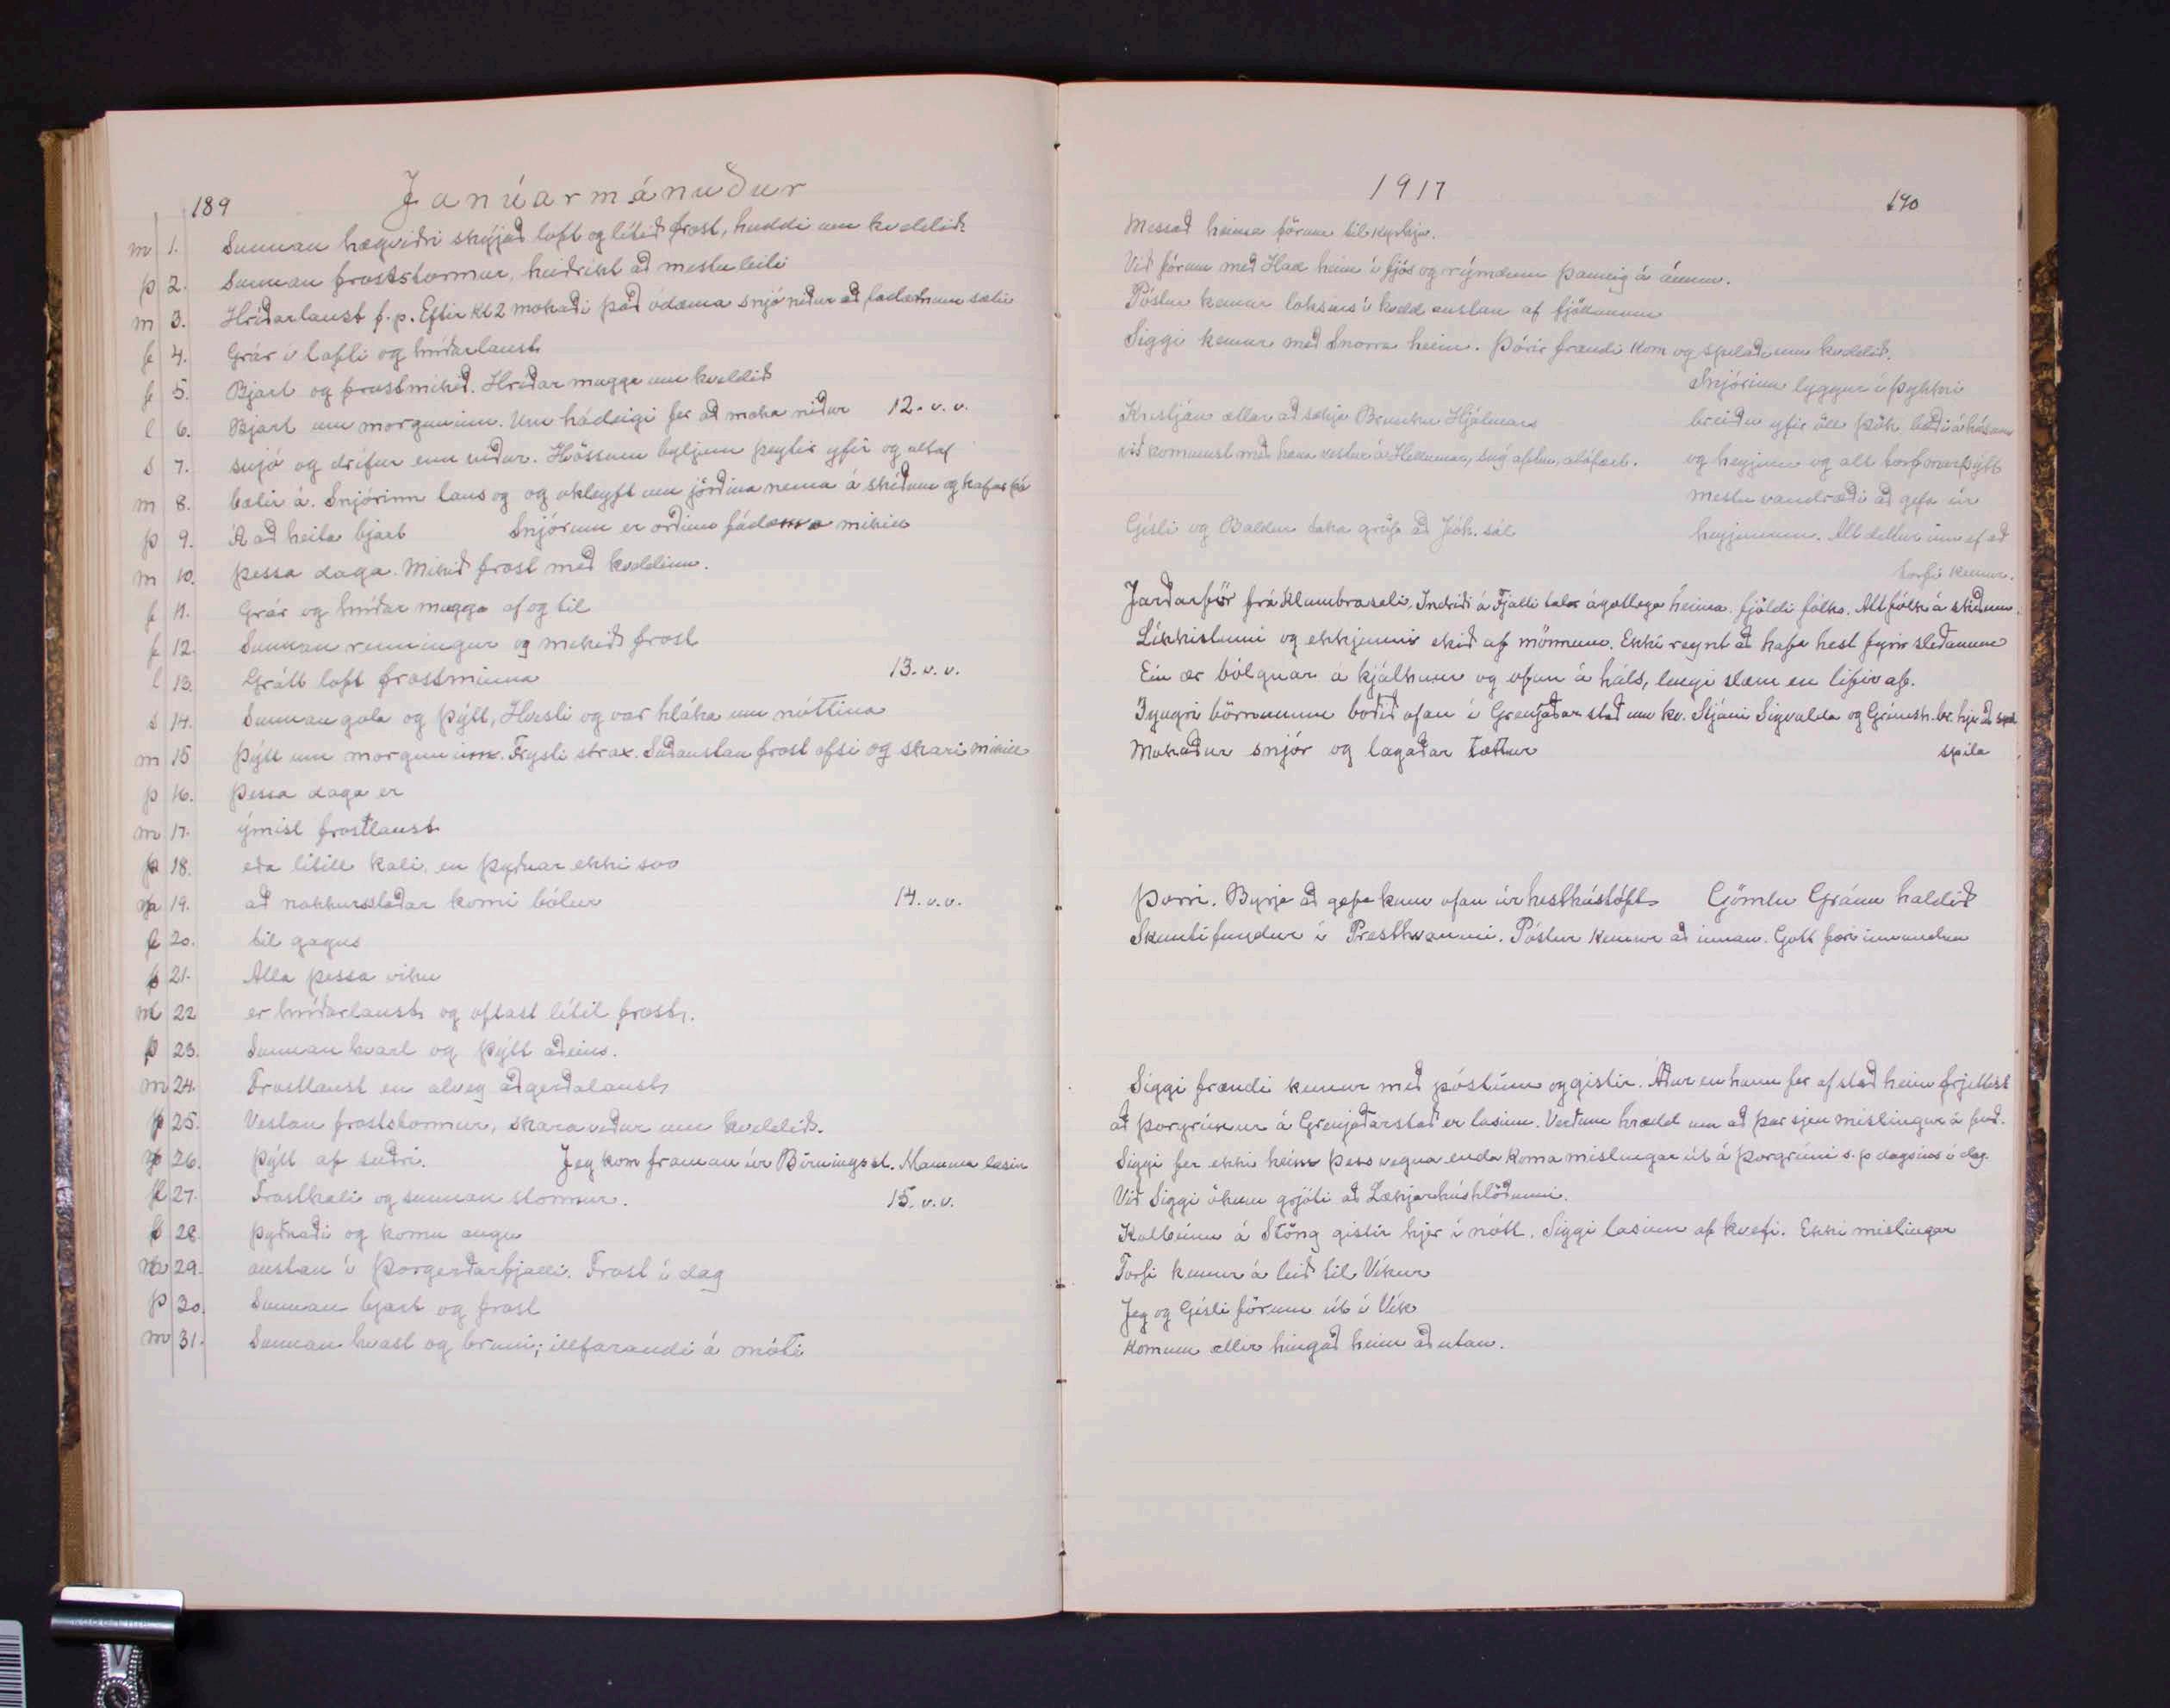 189
Janúarmánuður
m 1. Sunnan hægviðri skýjað loft og lítið frost, huddi um kveldið.
þ 2. Sunnan froststormur, heiðríkt að mestu leiti
m 3. Hríðarlaust f.p. Eftir kl 2 mokaði það ódæma snjó niður að fádæmum sætir
f 4. Grár í lofti og hríðarlaust
f 5. Bjart og frostmikið. Hríðar mugga um kveldið
l 6. Bjart um morguninn. Um hádeigi fer að moka niður 12. v. v.
s 7. snjó og drífur enn niður. Hössum byljum þeytir yfir og altaf
m 8. bætir á. Snjórinn laus og og ókleyft um jörðina nema á skíðum og kafar þó
þ 9. Á að heita bjart Snjórinn er orðinn fádæma mikill
m 10. þessa daga. Mikið frost með kveldinu.
f 11. Grár og hríðar mugga af og til
f 12. Sunnan renningur og mikið frost
l 13. Grátt loft frostminna 13. v. v.
s 14. Sunnan gola og þýtt, Hvesti og var hláka um nóttina
m 15 Þýtt um morguninn. Frysti strax. Suðaustan frost ofsi og skari mikill
þ 16. Þessa daga er
m 17. ýmist frostlaust
18. eða lítill kali, en þyðnar ekki svo
19. að nokkursstaðar komi bólur 14. v. v.
20. til gagns
21. Alla þessa viku
22 er hríðarlaust og oftast lítil frost.
þ 23. Sunnan hvast og þýtt aðeins.
m 24. Frostlaust en alveg aðgerðalaust
25. Vestan froststormur, skaraveður um kveldið.
26. Þýtt af suðri. Jeg kom framan úr Birningsst. Mamma lasin
27. Frostkali og sunnan stormur. 15. v. v.
28 þyðnaði og komu augu
29. austan í Þorgerðarfjalli. Frost í dag
þ 30. Sunnan bjart og frost
m 31. Sunnan hvast og bruni; illfarandi á móti
1917
190
Messað heima förum til kyrkju.
Við fórum með Hall heim í fjós og rýmdum þannig á ánum.
Póstur kemur loksins í kveld austan af fjöllunum
Siggi kemur með Snorra heim. Þórir frændi kom og spilað um kveldið.
Snjórinn lyggur í þykkri
Kristján ætlar að sækja Brunku Hjálmars breiðu yfir öll þök bæði á húsum
við komumst með hana vestur á Hellumar, snýr aftur, alófært. og heyjum og alt torf ónerþýtt
mestu vandræði að gefa úr
Gísli og Baldur taka gröf að Jóh. sál heyjunum. Alt dettur inn ef að
torfi kemur.
Jarðarför frá Klambraseli. Indriði á Fjalli talar ágætlega heima. fjöldi fólks. Alt fólk á skíðum.
Líkkistunni og ekkjunni ekið af mönnum. Ekki reynt að hafa hest fyrir sleðanum
Ein ær bólgnar á kjálkum og ofan á háls, lengi slæm en lifir af.
Íyngri börnunum boðið ofan í Grenjaðarstað um kv. Stjáni Sigvalda og Grímsh. br. hjer að
Mokaður snjór og lagaðar tættur spila
Þorri. Byrja að gefa kum ofan úr hesthústóft Gömlu Gránu haldið
Skautifundur í Presthvammi. Póstur kemur að innan. Gott færi innundan
Siggi frændi kemur með póstinn og gistir. Áður en hann fer af stað heim frjettist
að Þorgrímur á Grenjaðarstað er lasinn. Verðum hrædd um að þar sjeu mislingar á ferð.
Siggi fer ekki heim þess vegna enda koma mislingar út á Þorgrími s.p dagsins í dag.
Við Siggi ökum grjóti að Lækjarhúshlöðunni.
Kolbeinn á Stöng gistir hjer í nótt. Siggi lasinn af kvefi. Ekki mislingar
Torfi kemur á leið til Víkur
Jeg og Gísli förum út í Vík
Komum allir hingað heim að utan.